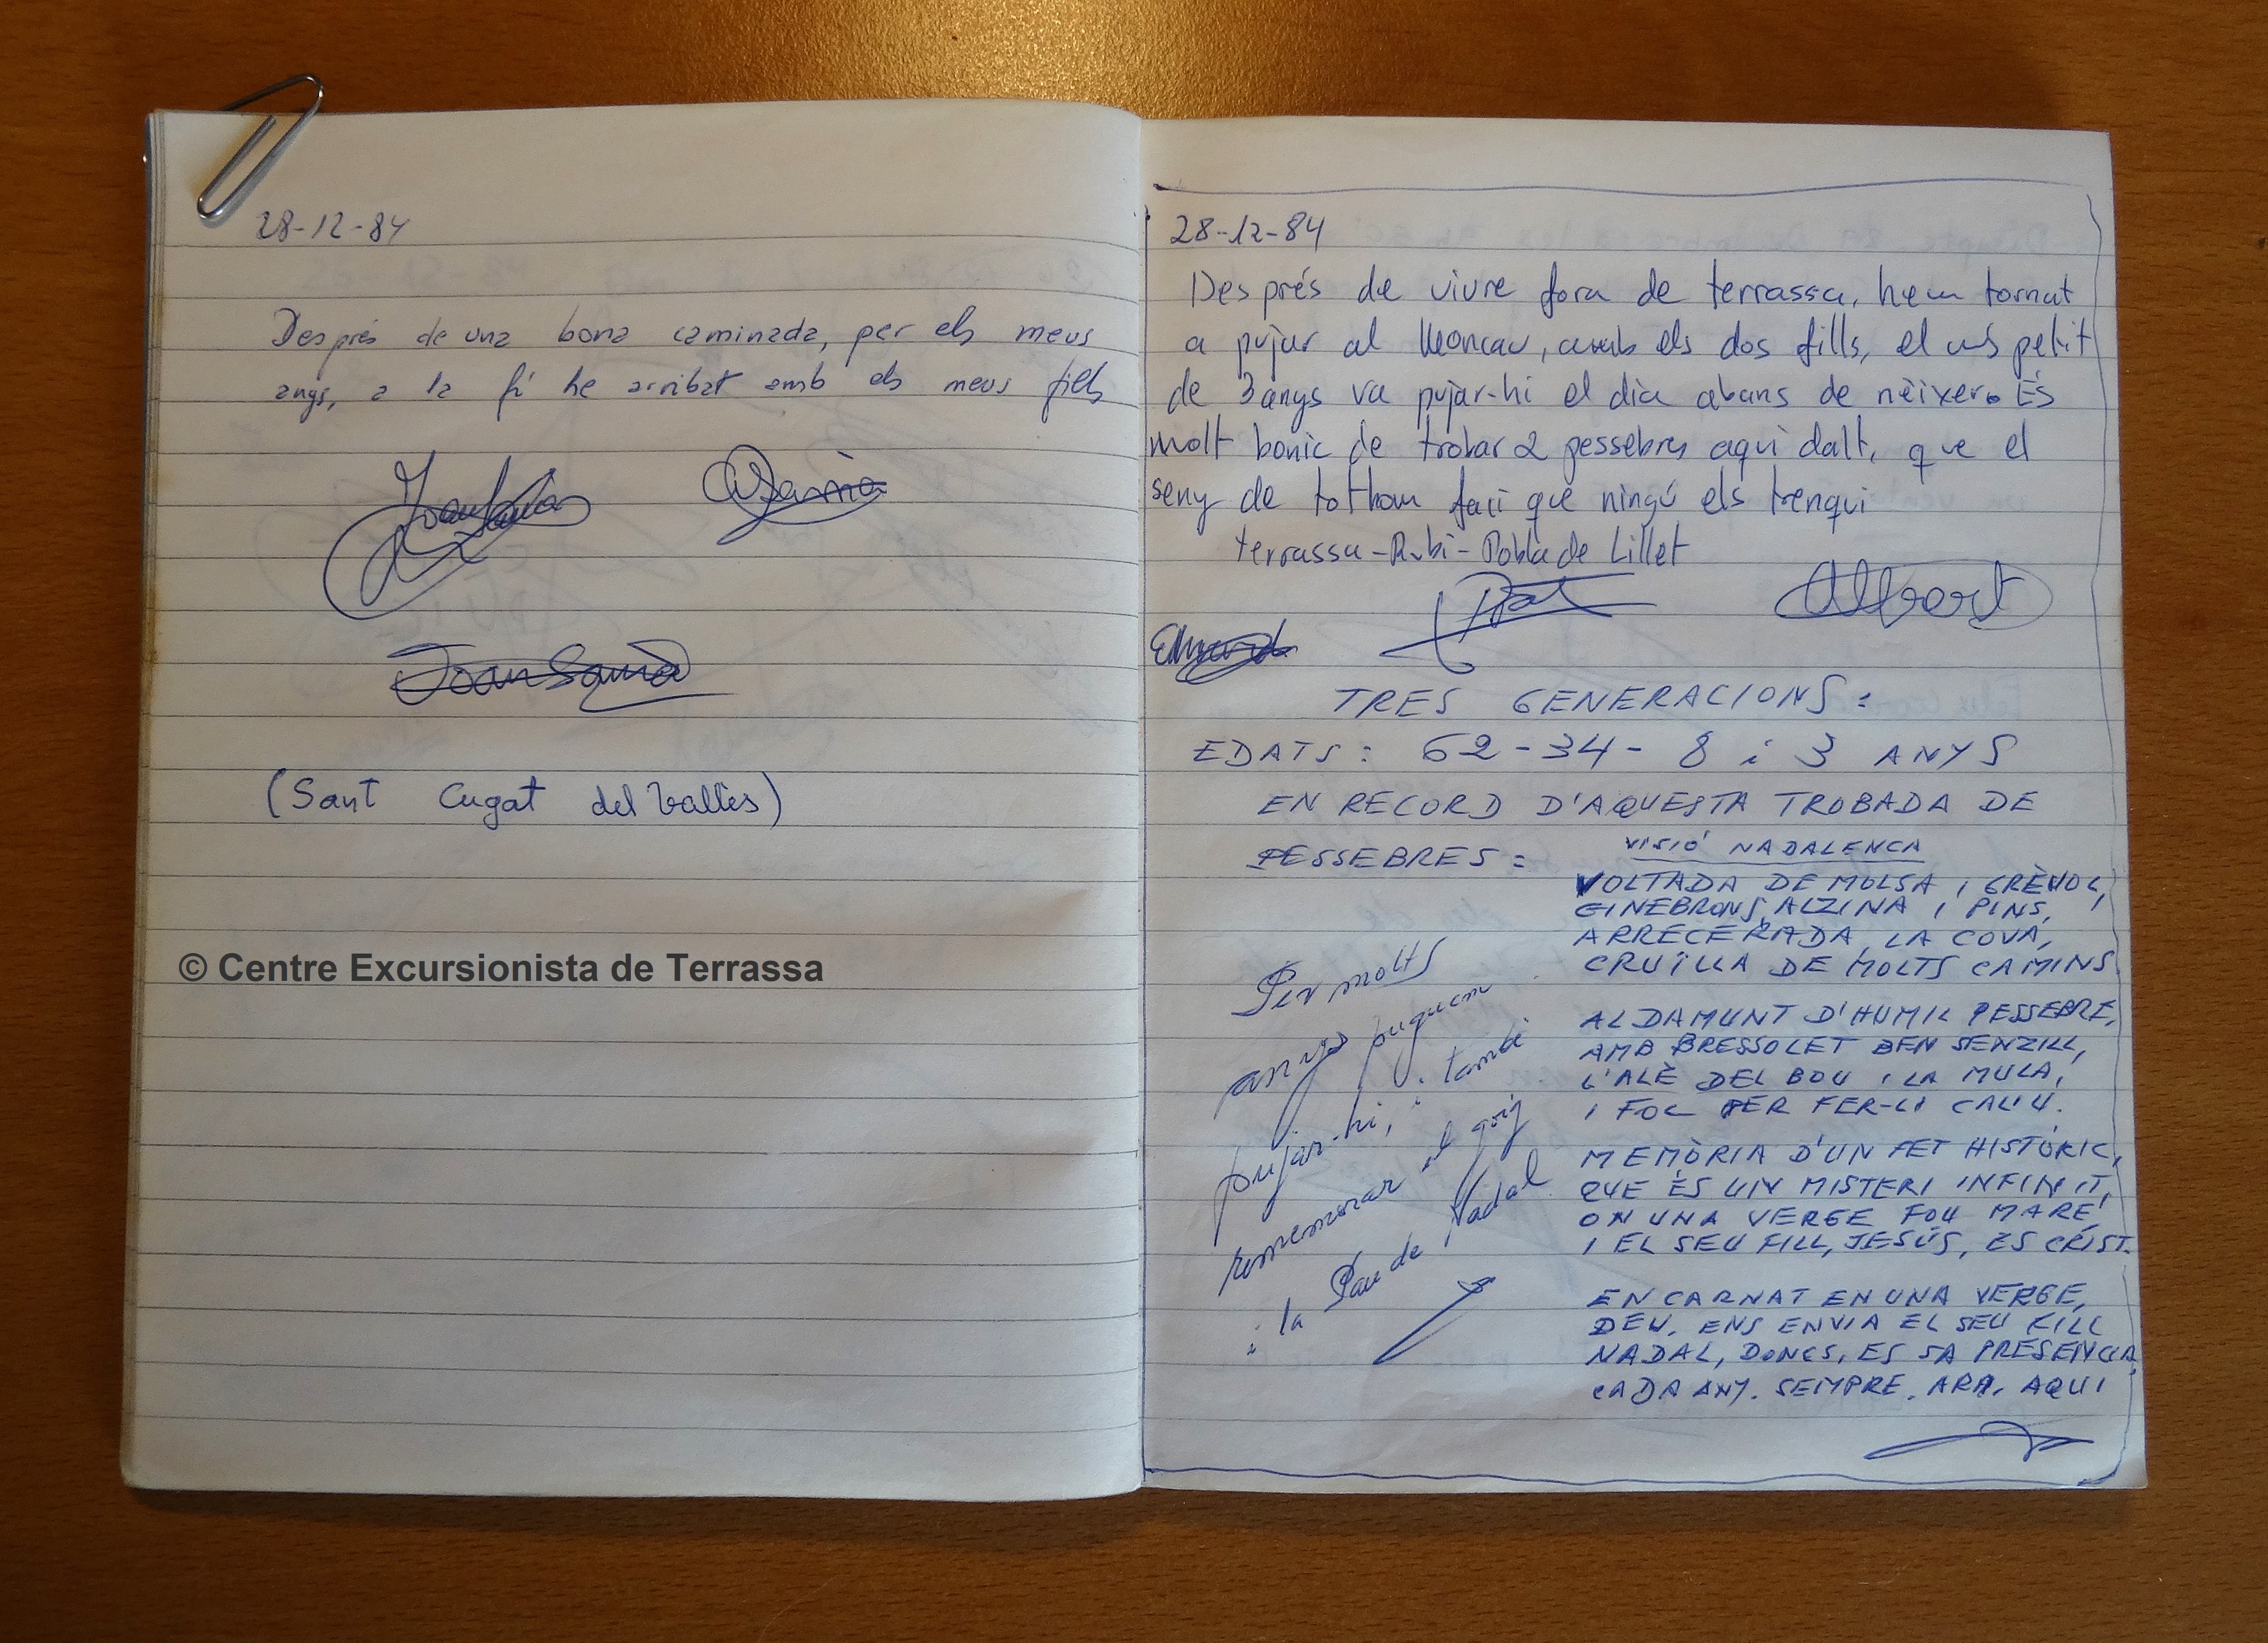 28-12-84
Després de una bona caminada, per els meus
anys, a la fi he arribat amb els meus fills
Joan
Joan Samà
(Sant Cugat del Vallès)
© Centre Excursionista de Terrassa
28-12-84
Després de viure fora de terrassa, hem tornat
a pujar al Moncau, amb els dos fills, el més petit
de 3 anys va pujar-hi el dia abans de nèixer. És
molt bonic de trobar 2 pessebres aquí dalt, que el
seny de tothom faci que ningú els trenqui
terrassa-Rubí-Pobla de Lillet
Albert
Eduard
TRES GENERACIONS:
EDATS: 62-34-8 i 3 ANYS
EN RECORD D'AQUESTA TROBADA DE
PESSEBRES:
VISIÓ NADALENCA
VOLTADA DE MOLSA I GRÈVOL,
GINEBRONS, ALZINA I PINS,
ARRECERADA, LA COVA,
CRUÏLLA DE MOLTS CAMINS
ALDAMUNT D'HUMIL PESSEBRE,
AMB BRESSOLET BEN SENZILL,
L'ALÈ DEL BOU I LA MULA,
I FOC PER FER-LI CALIU.
MEMÒRIA D'UN FET HISTÒRIC,
QUE ÉS UN MISTERI INFINIT,
ON UNA VERGE FOU MARE
I EL SEU FILL, JESÚS, ES CRIST.
ENCARNAT EN UNA VERGE,
DEU, ENS ENVIA EL SEU FILL
NADAL, DONCS, ES SA PRESENCIA
CADA ANY. SEMPRE. ARA. AQUI
Per molts
anys puguem
pujar-hi, i també
rememorar el goig
i la Pau de Nadal